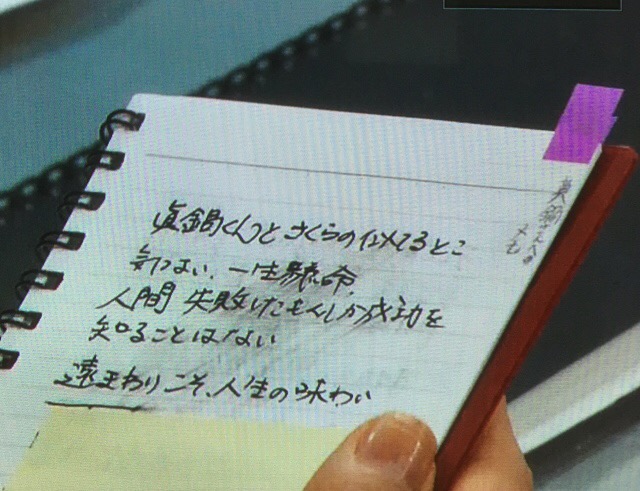 眞鍋くんとさくらの似てるとこ
気づよい、一生懸命、
人間 失敗したもんしか成功を
知ることはない
遠まわりこそ、人生の味わい